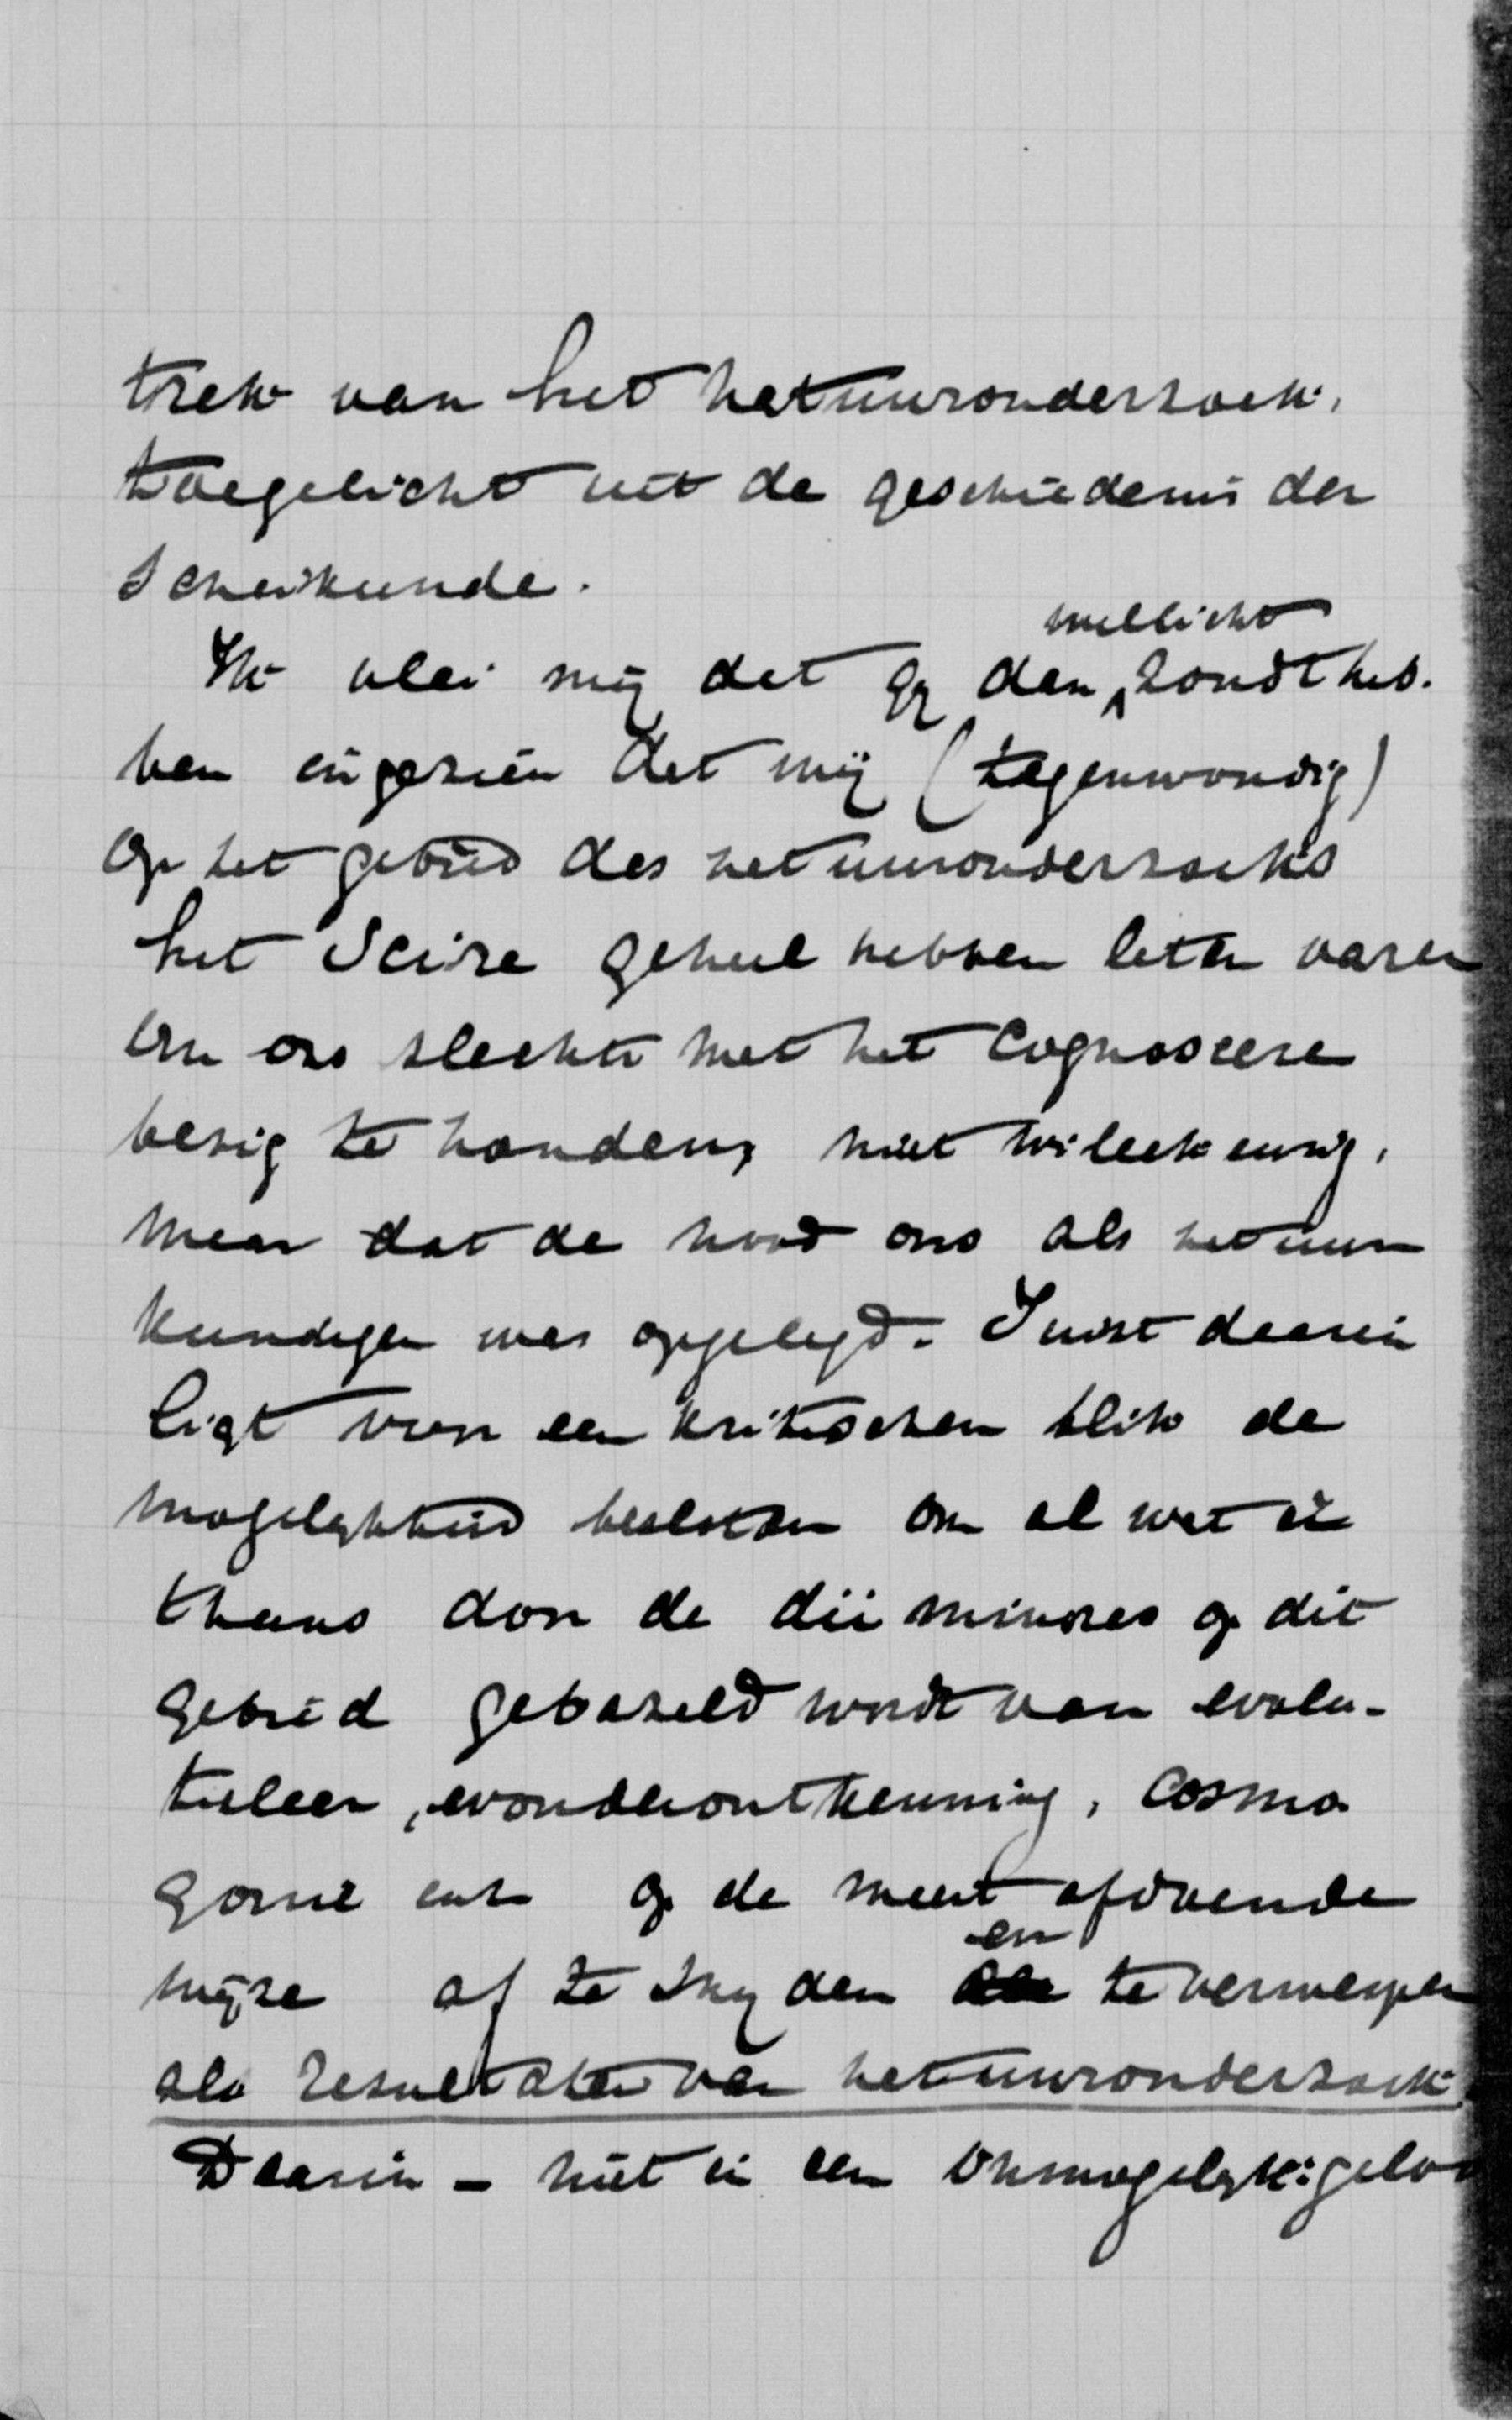 trek van het natuuronderzoek,
toegelicht uit de geschiedenis der
Scheikunde.
Ik vlei mij dat gij dan wellicht zoudt heb-
ben ingezien dat wij (tegenwoordig)
op het gebied des natuuronderzoeks
het Scire geheel hebben laten varen
om ons slechts met het Cognoscere
bezig te houden, niet willekeurig,
maar dat de nood ons als natuur
kundigen was opgelegd. Juist daarin
ligt voor een kritischen blik de
mogelijkheid besloten om al wat er
thans door de dii minores op dit
gebied gebazeld wordt van evolu-
tieleer, wonderontkenning, Cosmo
gonie enz op de meest afdoende
wijze af te snijden en te verwerpen
als resultaten van natuuronderzoek.
Daarin – niet in een onmogelijk: